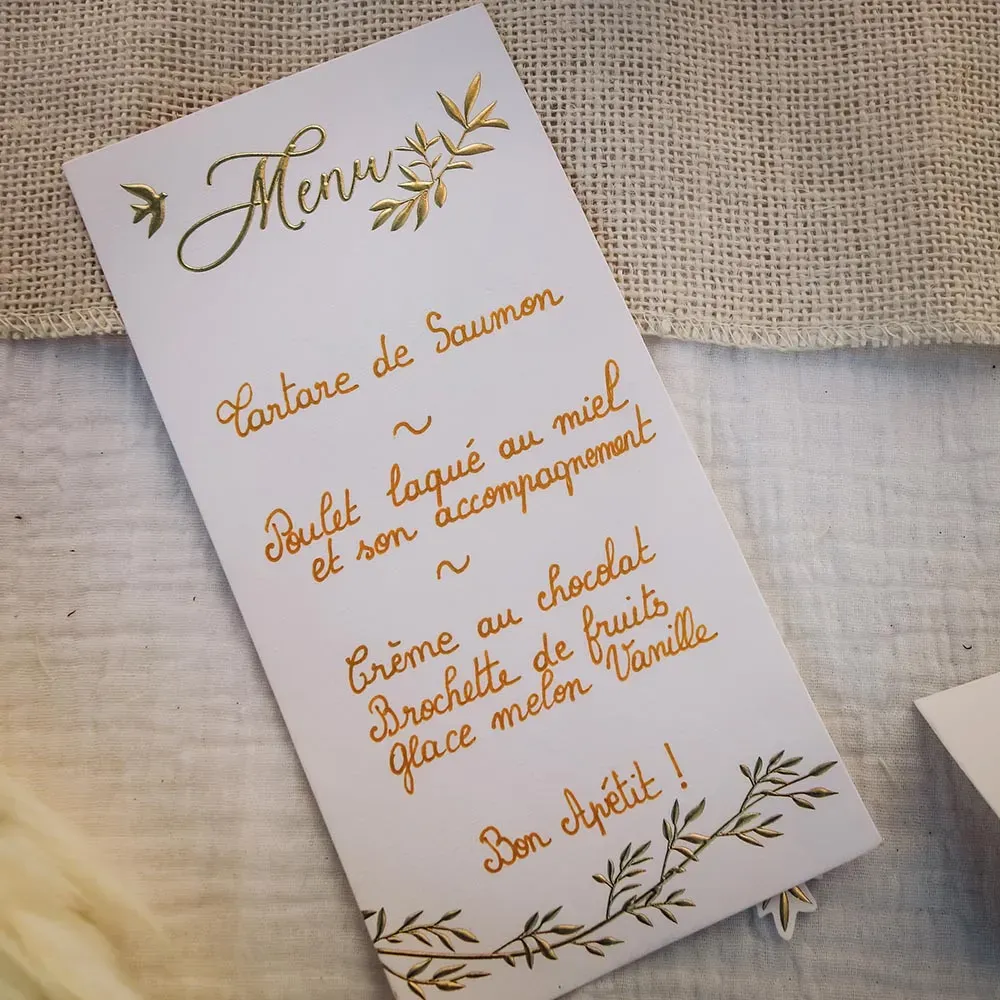 Menu
Tartare de Saumon
~
Poulet laqué au miel
et son accompagnement
~
Crème au chocolat
Brochette de fruits
Glace melon Vanille
Bon Apétit !